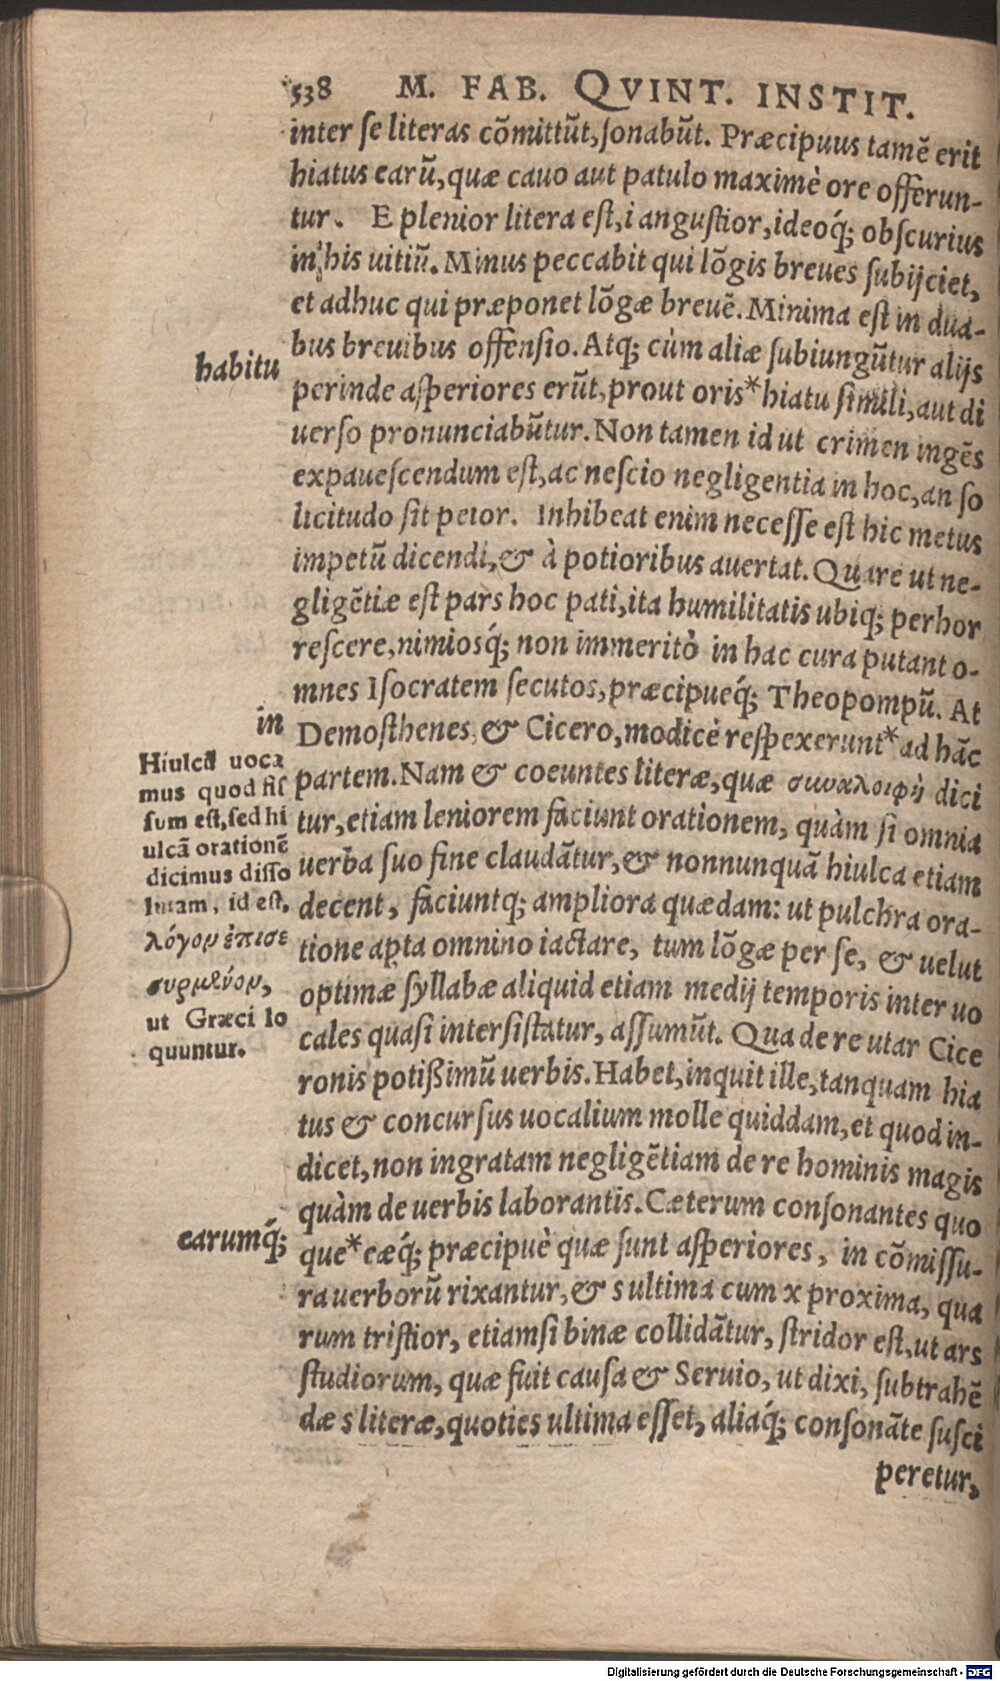 538 M. FAB. QVINT. INSTIT.
inter se literas cōmittūt, sonabūt. Præcipuus tamē erit
hiatus earū, quæ cauo aut patulo maximè ore offerun-
tur. E plenior litera est, i angustior, ideoq́; obscurius
in his uitiū. Minus peccabit qui lōgis breues subijciet,
et adhuc qui præponet lōgæ breuē. Minima est in dua-
bus breuibus offensio. Atq; cùm aliæ subiungūtur alijs
habitu
perinde asperiores erūt, prout oris* hiatu simili, aut di
uerso pronunciabūtur. Non tamen id ut crimen ingēs
expauescendum est, ac nescio negligentia in hoc, an so
licitudo sit peior. Inhibeat enim necesse est hic metus
impetū dicendi, & à potioribus auertat. Quare ut ne-
gligētiæ est pars hoc pati, ita humilitatis ubiq; perhor
rescere, nimiosq́; non immeritò in hac cura putant o-
mnes Isocratem secutos, præcipueq́; Theopompū. At
in
Demosthenes, & Cicero, modicè respexerunt* ad hāc
partem. Nam & coeuntes literæ, quæ συναλοιφὴ dici
tur, etiam leniorem faciunt orationem, quàm si omnia
uerba suo fine claudātur, & nonnunquā hiulca etiam
decent, faciuntq; ampliora quædam: ut pulchra ora-
tione apta omnino iactare, tum lōgæ per se, & uelut
optimæ syllabæ aliquid etiam medij temporis inter uo
cales quasi intersistatur, assumūt. Qua de re utar Cice
ronis potißimū uerbis. Habet, inquit ille, tanquam hia
tus & concursus uocalium molle quiddam, et quod in-
dicet, non ingratam negligētiam de re hominis magis
quàm de uerbis laborantis. Cæterum consonantes quo
earumq́;
que* eæq́; præcipuè quæ sunt asperiores, in cōmissu-
ra uerborū rixantur, & s ultima cum x proxima, qua
rum tristior, etiamsi binæ collidātur, stridor est, ut ars
studiorum, quæ fuit causa & Seruio, ut dixi, subtrahē
dæ s literæ, quoties ultima esset, aliaq́; consonāte susci
peretur,
Hiulcū uoca
mus quod fis
sum est, sed hi
ulcā orationē
dicimus disso
lutam, id est,
λόγον ἐπισε
συρμένον,
ut Græci lo
quuntur.
Digitalisierung gefördert durch die Deutsche Forschungsgemeinschaft - DFG